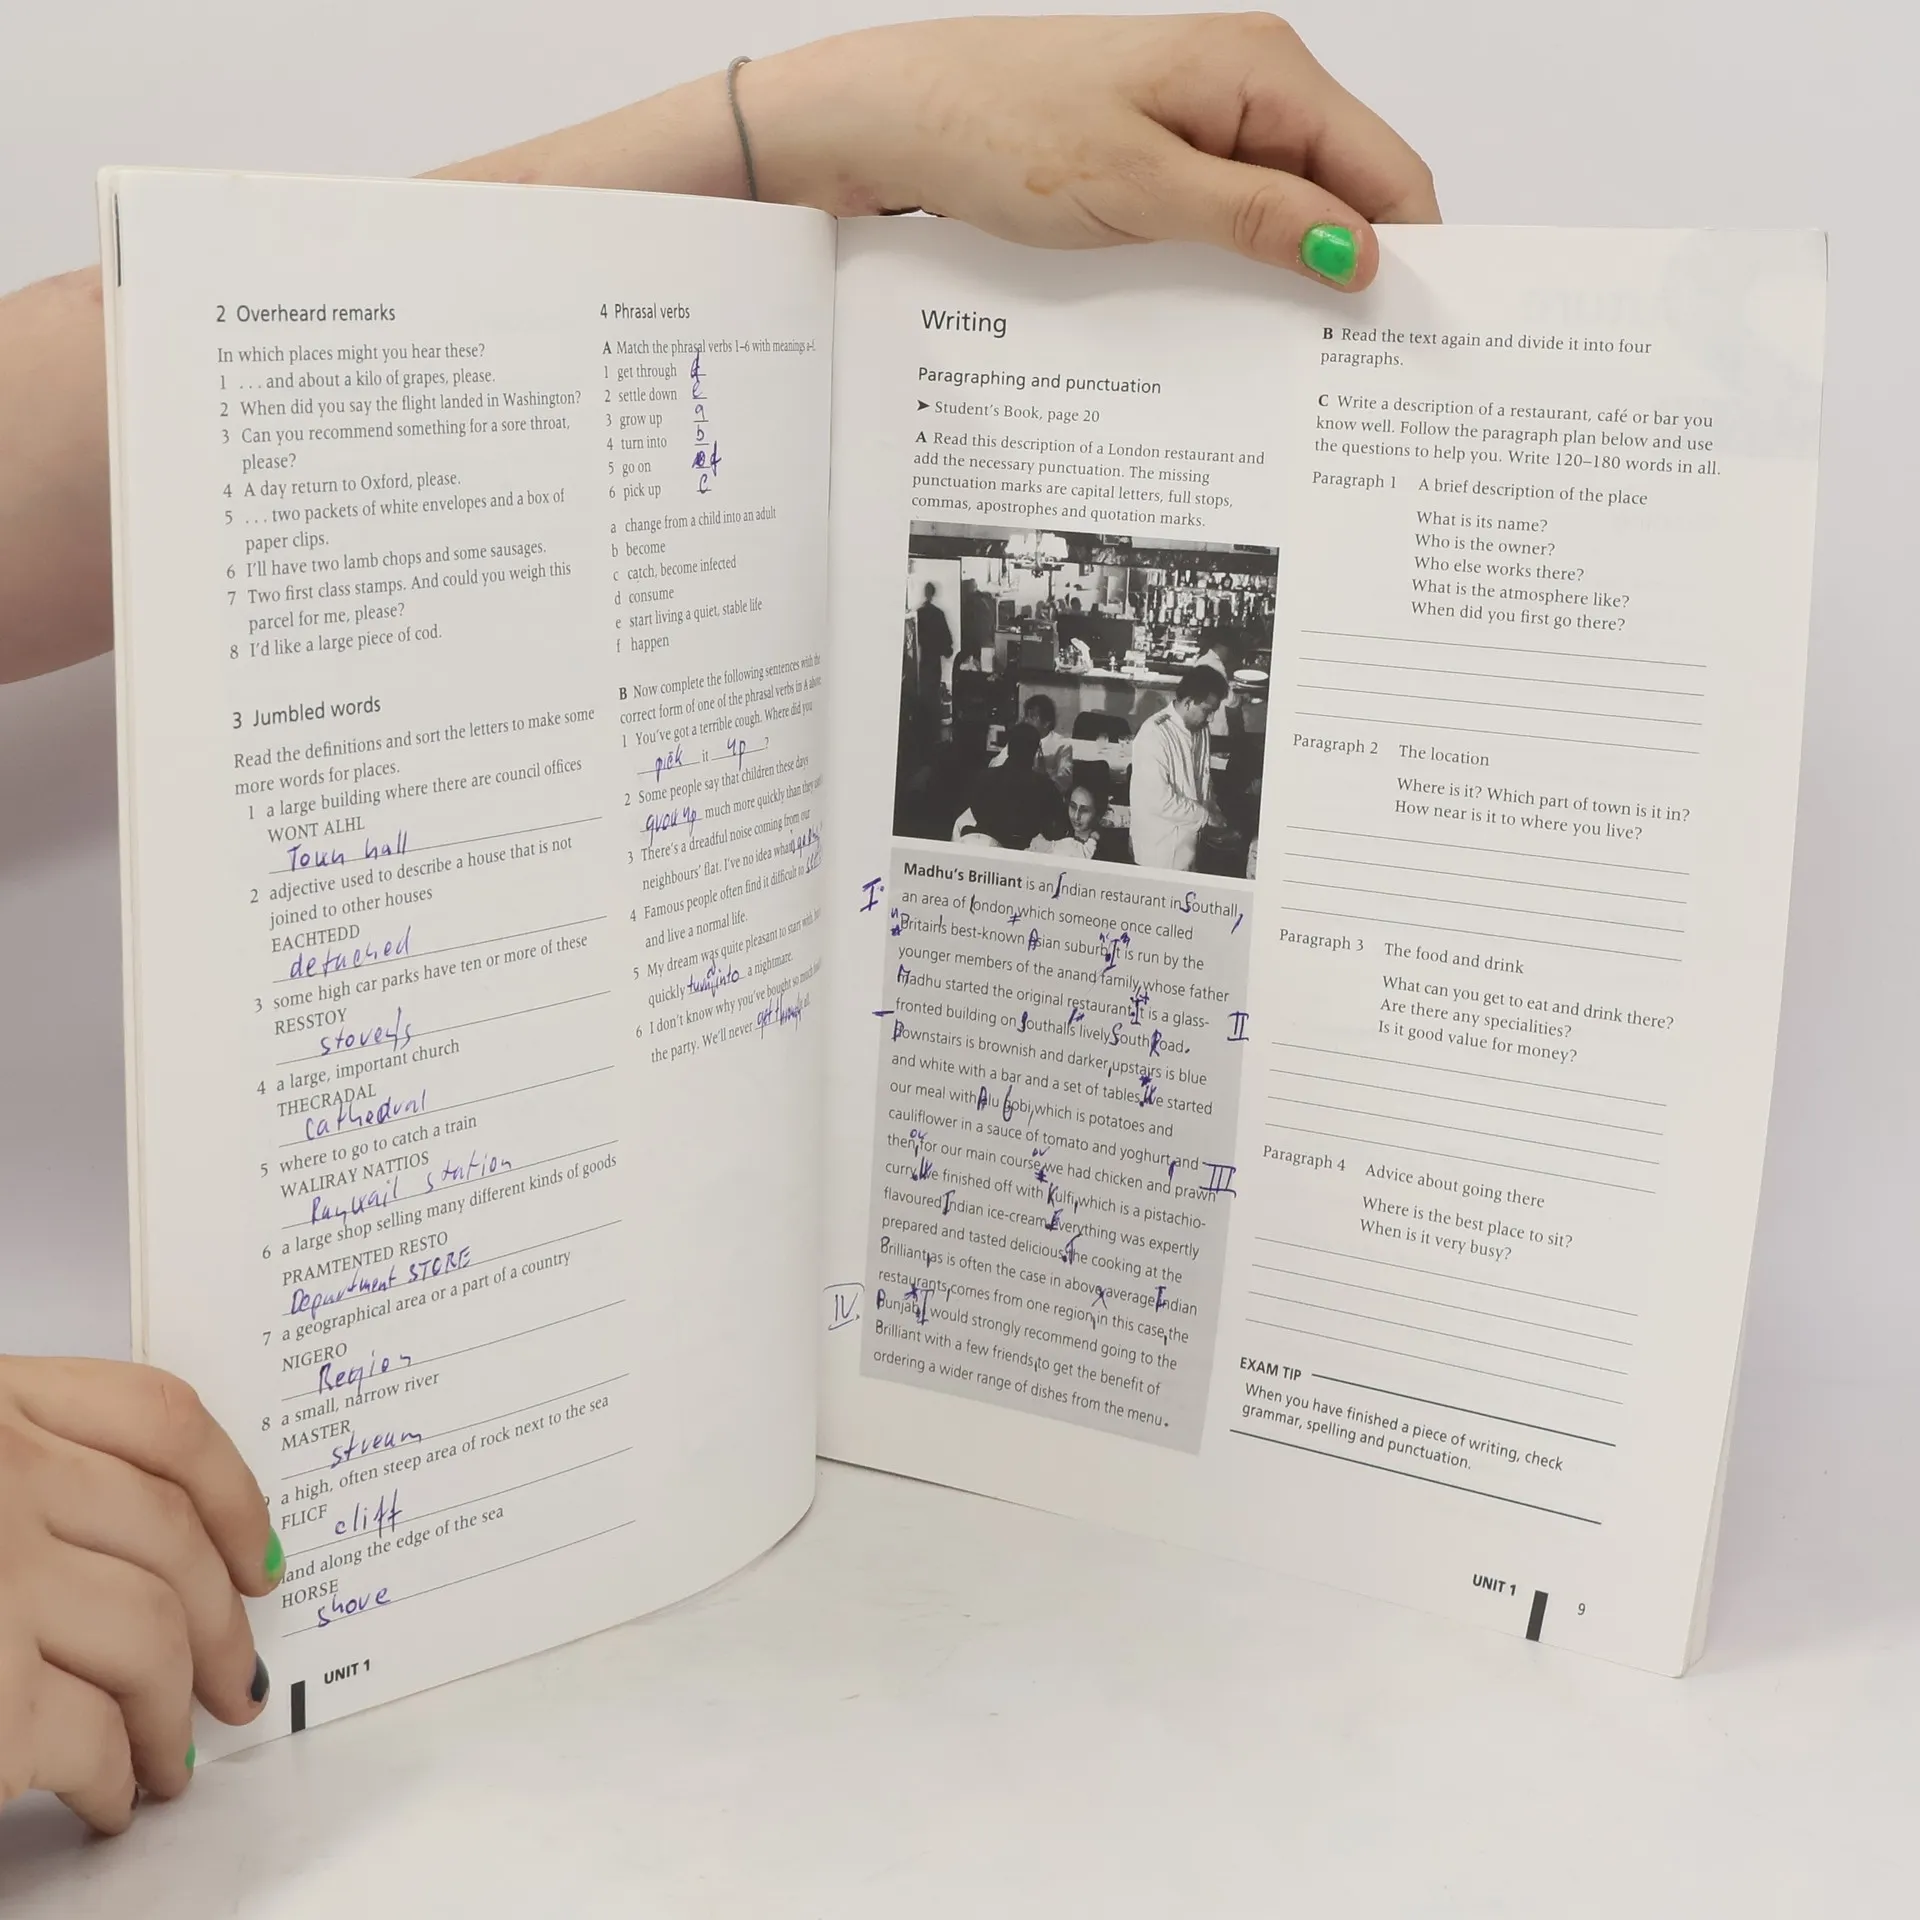 2 Overheard remarks
In which places might you hear these?
1 ... and about a kilo of grapes, please.
2 When did you say the flight landed in Washington?
3 Can you recommend something for a sore throat,
please?
4 A day return to Oxford, please.
5 ... two packets of white envelopes and a box of
paper clips.
6 I'll have two lamb chops and some sausages.
7 Two first class stamps. And could you weigh this
parcel for me, please?
8 I'd like a large piece of cod.
3 Jumbled words
Read the definitions and sort the letters to make some
more words for places.
1 a large building where there are council offices
WONT ALHL
Town hall
2 adjective used to describe a house that is not
joined to other houses
EACHTEDD
detached
3 some high car parks have ten or more of these
RESSTOY
4 a large, important church
THECRADAL
Cathedral
5 where to go to catch a train
WALIRAY NATTIOS
station
6 a large shop selling many different kinds of goods
PRAMTENTED RESTO
Department STORE
7 a geographical area or a part of a country
NIGERO
Region
8 a small, narrow river
MASTER
stream
a high, often steep area of rock next to the sea
FLICF
cliff
land along the edge of the sea
HORSE
shore
UNIT 1
4 Phrasal verbs
A Match the phrasal verbs 1–6 with meanings a–f.
1 get through d
2 settle down e
3 grow up a
4 turn into b
5 go on f
6 pick up c
a change from a child into an adult
b become
c catch, become infected
d consume
e start living a quiet, stable life
f happen
B Now complete the following sentences with the
correct form of one of the phrasal verbs in A above.
1 You've got a terrible cough. Where did you
pick it up ?
2 Some people say that children these days
grow up much more quickly than they
3 There's a dreadful noise coming from our
neighbours' flat. I've no idea what
4 Famous people often find it difficult to
and live a normal life.
5 My dream was quite pleasant to start with,
quickly turn into a nightmare.
6 I don't know why you've bought so much
the party. We'll never get through all.
Writing
Paragraphing and punctuation
➤ Student's Book, page 20
A Read this description of a London restaurant and
add the necessary punctuation. The missing
punctuation marks are capital letters, full stops,
commas, apostrophes and quotation marks.
I Madhu's Brilliant is an Indian restaurant in Southall,
an area of London, which someone once called
"Britain's best-known Asian suburb". It is run by the
younger members of the anand family, whose father
Madhu started the original restaurant. It is a glass- II
fronted building on Southall's lively South Road.
Downstairs is brownish and darker, upstairs is blue
and white with a bar and a set of tables. We started
our meal with Alu Gobi, which is potatoes and
cauliflower in a sauce of tomato and yoghurt, and III
then, for our main course, we had chicken and prawn
curry. We finished off with Kulfi, which is a pistachio-
flavoured Indian ice-cream. Everything was expertly
prepared and tasted delicious. The cooking at the
Brilliant, as is often the case in above average Indian
restaurants, comes from one region, in this case, the
IV. Punjab. I would strongly recommend going to the
Brilliant with a few friends, to get the benefit of
ordering a wider range of dishes from the menu.
B Read the text again and divide it into four
paragraphs.
C Write a description of a restaurant, café or bar you
know well. Follow the paragraph plan below and use
the questions to help you. Write 120–180 words in all.
Paragraph 1 A brief description of the place
What is its name?
Who is the owner?
Who else works there?
What is the atmosphere like?
When did you first go there?
Paragraph 2 The location
Where is it? Which part of town is it in?
How near is it to where you live?
Paragraph 3 The food and drink
What can you get to eat and drink there?
Are there any specialities?
Is it good value for money?
Paragraph 4 Advice about going there
Where is the best place to sit?
When is it very busy?
EXAM TIP
When you have finished a piece of writing, check
grammar, spelling and punctuation.
UNIT 1 9